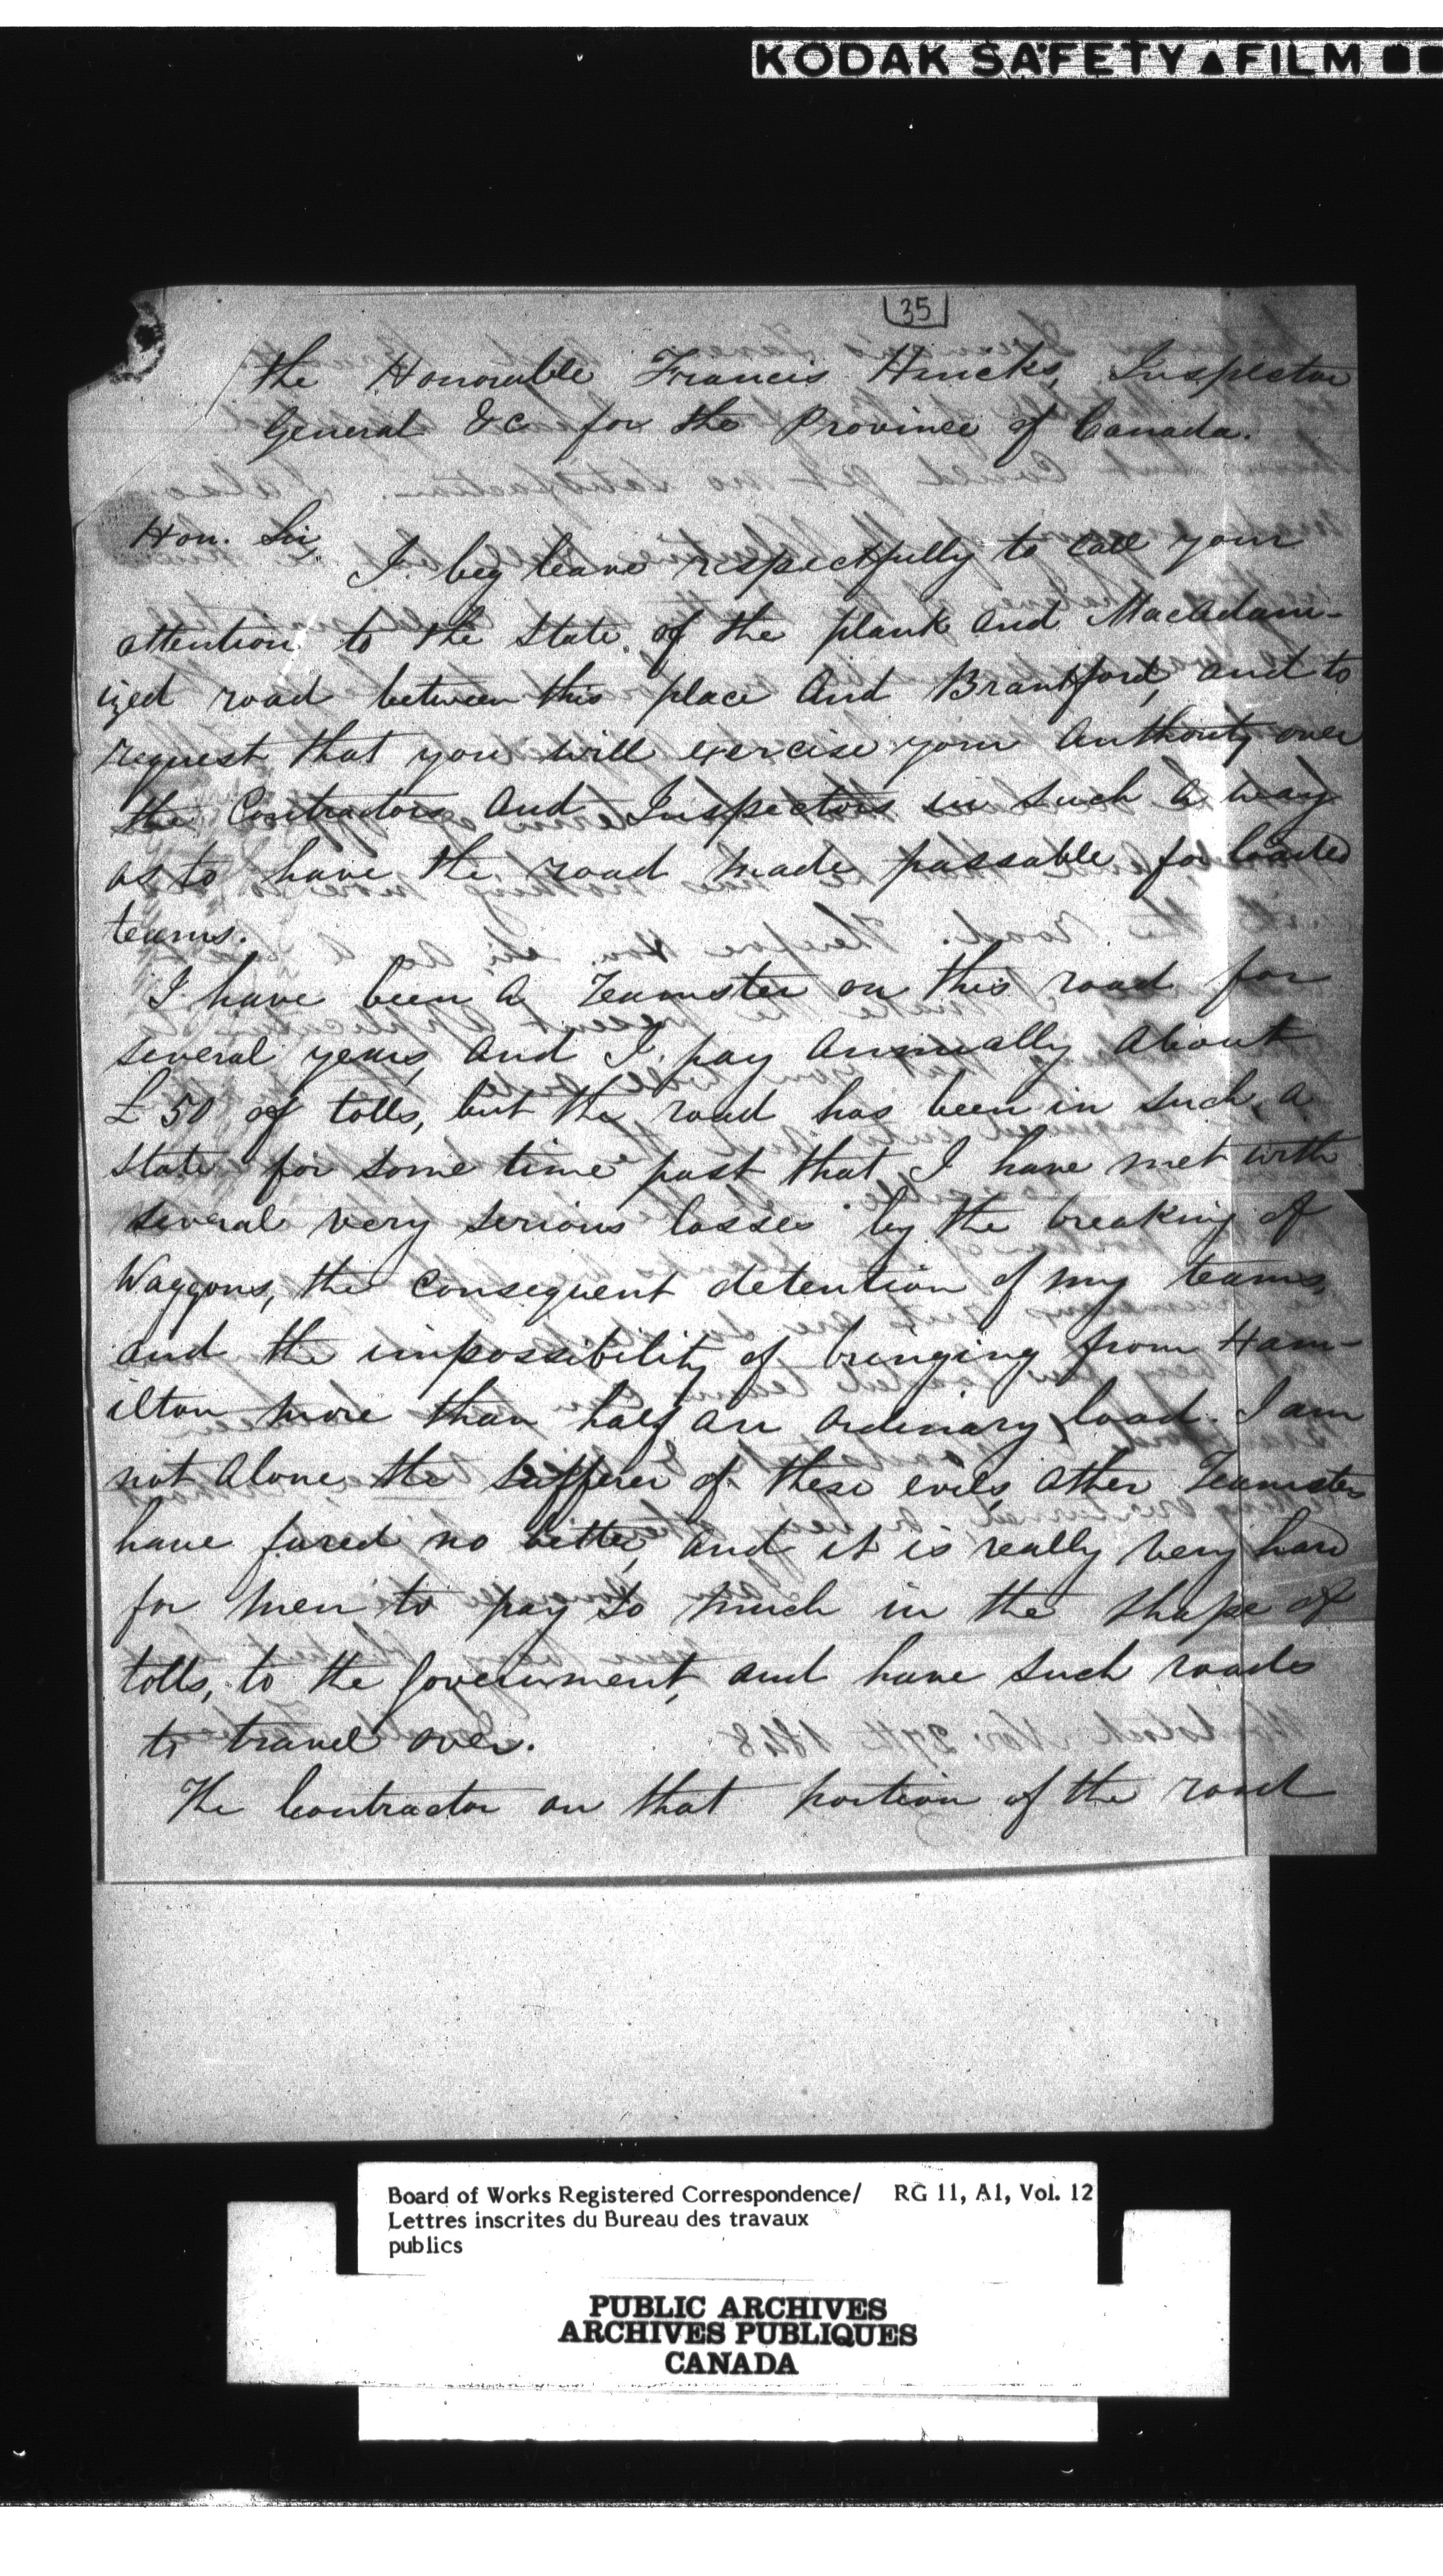 KODAK SAFETY ▲ FILM
35
the Honorable Francis Hincks, Inspector
General &c for the Province of Canada.
Hon. Sir,
I beg leave respectfully to call your
attention to the state of the plank and Macadam-
ized road between this place and Brantford, and to
request that you will exercise your authority over
the Contractors and Inspectors in such a way
as to have the road made passable for loaded
teams.
I have been a Teamster on this road for
several years, and I pay annually about
£50 of tolls, but the road has been in such a
state for some time past that I have met with
several very serious losses by the breaking of
Waggons, the consequent detention of my teams,
and the impossibility of bringing from Ham-
ilton more than half an ordinary load. I am
not alone the sufferer of these evils, other Teamsters
have fared no better, and it is really very hard
for men to pay so much in the shape of
tolls, to the Government, and have such roads
to travel over.
The Contractor on that portion of the road
Board of Works Registered Correspondence/ RG 11, A1, Vol. 12
Lettres inscrites du Bureau des travaux
publics
PUBLIC ARCHIVES
ARCHIVES PUBLIQUES
CANADA